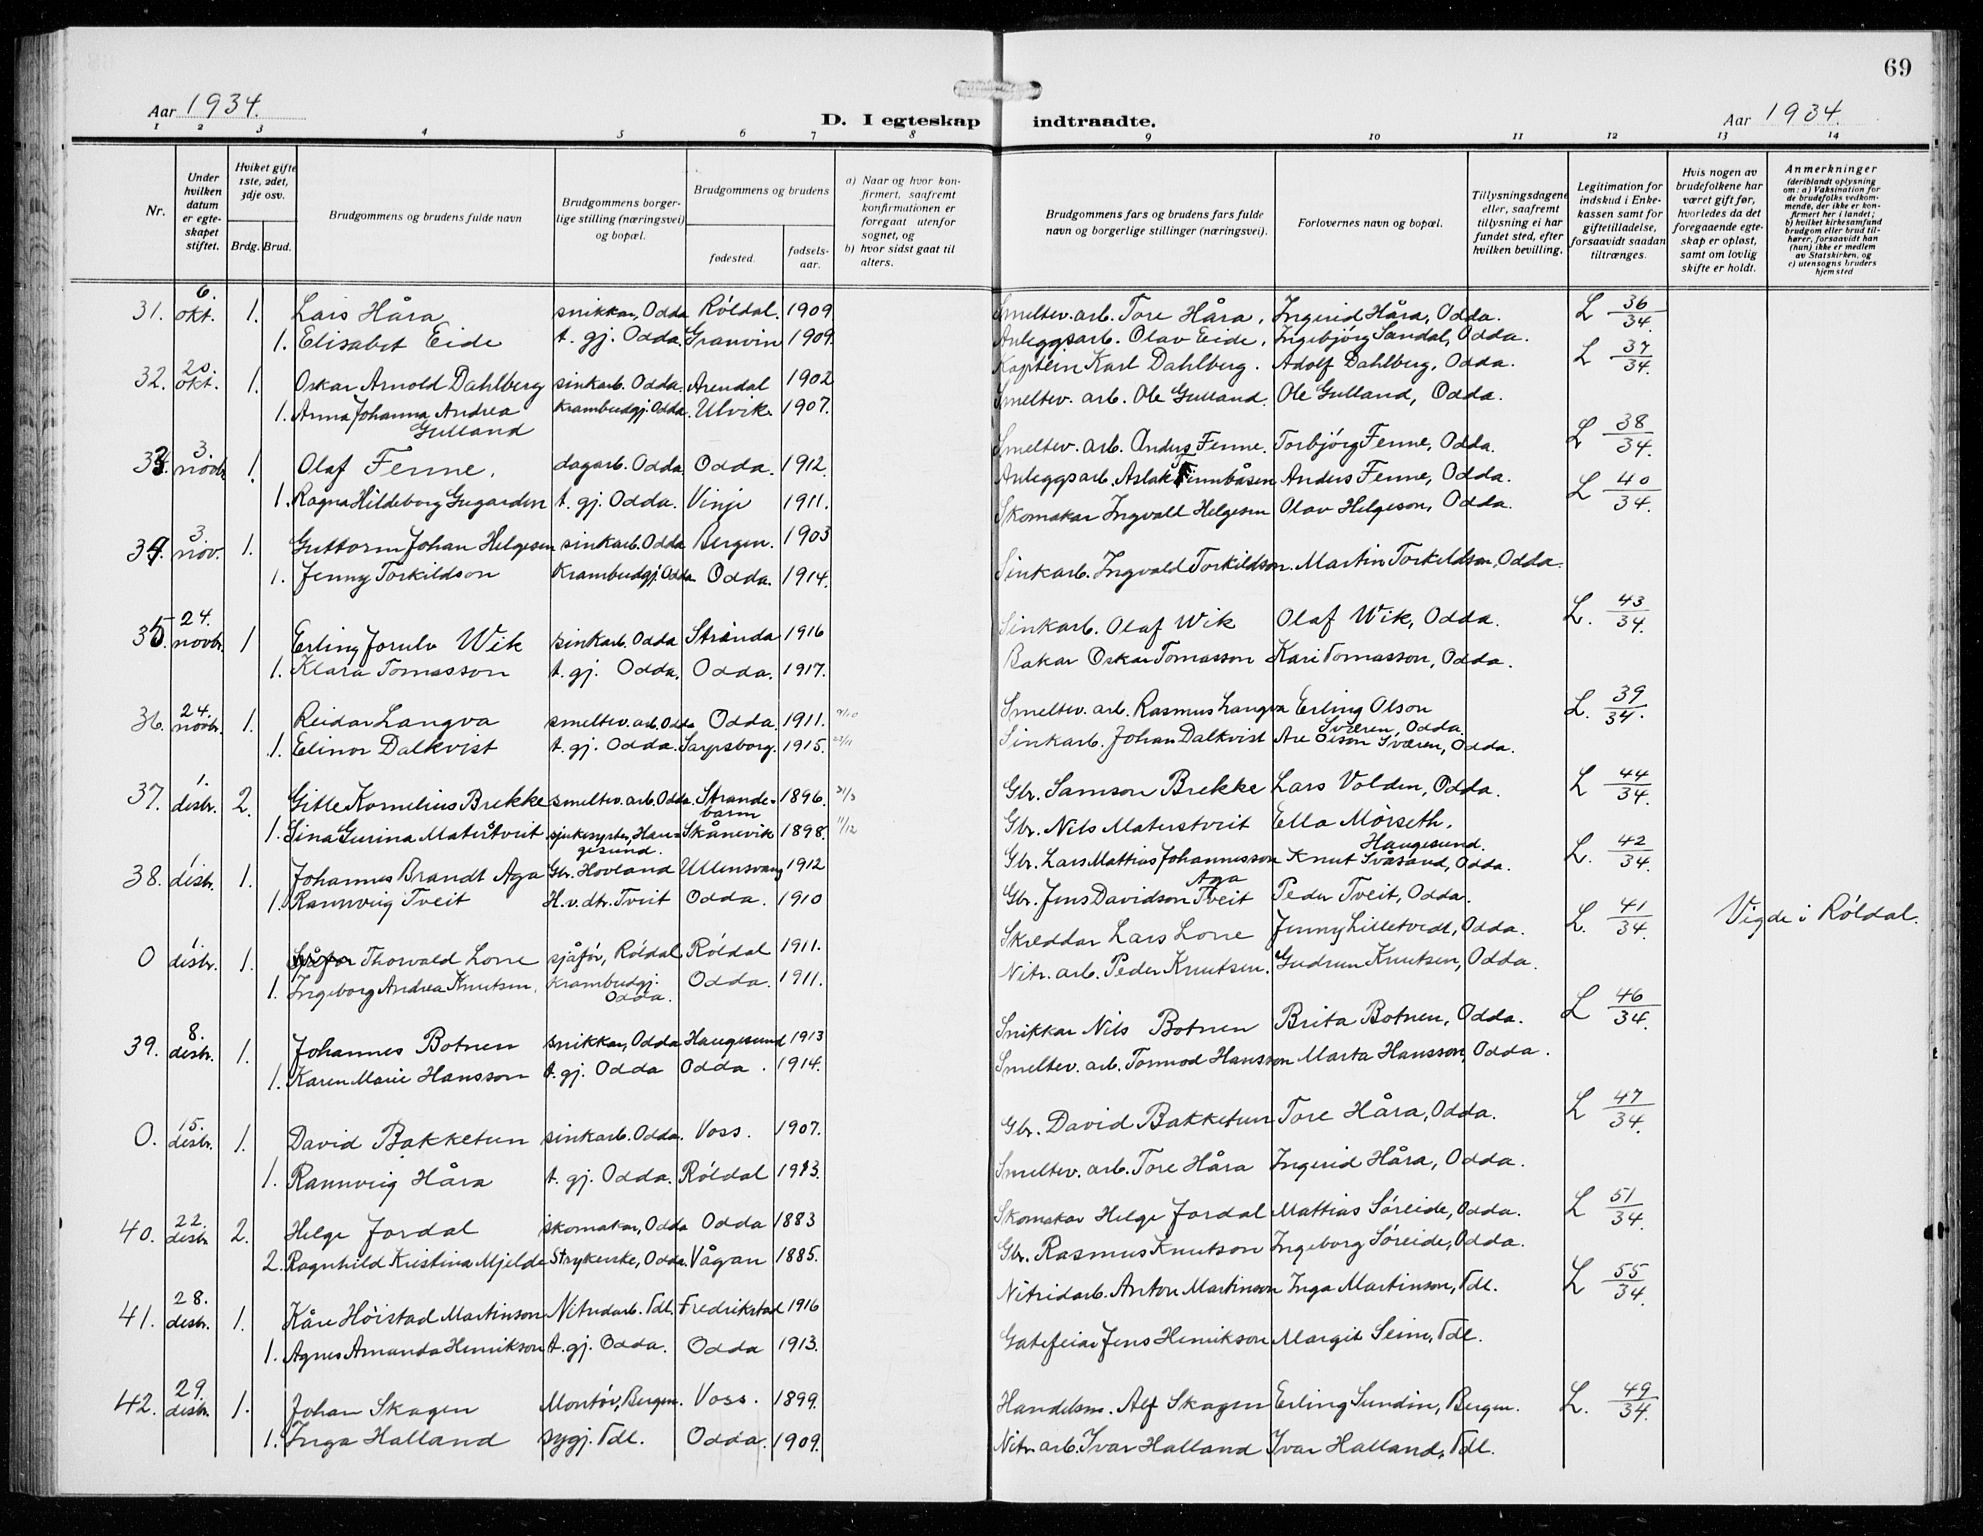 69
Aar 1934.
D. I egteskap indtraadte.
Aar 1934.
1 2 3 4 5 6 7 8 9 10 11 12 13 14
Nr.
Under hvilken datum er egteskapet stiftet.
Hvilket gifte 1ste, 2det, 3dje osv.
Brdg. Brud.
Brudgommens og brudens fulde navn
Brudgommens borgerlige stilling (næringsvei) og bopæl.
Brudgommens og brudens
fødested. fødselsaar.
a) Naar og hvor konfirmert, saafremt konfirmationen er foregaat utenfor sognet, og
b) hvor sidst gaat til alters.
Brudgommens fars og brudens fars fulde navn og borgerlige stillinger (næringsvei).
Forlovernes navn og bopæl.
Tillysningsdagene eller, saafremt tillysning ei har fundet sted, efter hvilken bevilling.
Legitimation for indskud i Enkekassen samt for giftetilladelse, forsaavidt saadan tiltrænges.
Hvis nogen av brudefolkene har været gift før, hvorledes da det foregaaende egteskap er opløst, samt om lovlig skifte er holdt.
Anmerkninger (deriblandt oplysning om: a) Vaksination for de brudefolks vedkommende, der ikke er konfirmert her i landet; b) hvilket kirkesamfund brudgom eller brud tilhører, forsaavidt han (hun) ikke er medlem av Statskirken, og c) utensogns bruders hjemsted
31. 6. okt. 1. Lars Håra snikkar, Odda Róldal. 1909 Smeltev. arb. Tore Håra, Ingerid Håra, Odda. L 36/34.
1. Elisabet Eide t. gj. Odda. Granvin 1909. Anleggsarb. Olav Eide, Ingebjórg Sandal, Odda.
32. 20. okt. 1. Oskar Arnold Dahlberg sinkarb. Odda. Arendal 1902 Kaptein Karl Dahlberg. Adolf Dahlberg, Odda. L 37/34.
1. Anna Johanna Andrea Gulland Krambudgj. Odda. Ulvik. 1907. Smeltev. arb. Ole Gulland. Ole Gulland, Odda.
33. 3. novbr. 1. Olaf Fenne. dagarb. Odda. Odda. 1912. Smeltev. arb. Anders Fenne. Torbjórg Fenne, Odda. L 38/34.
1. Ragna Hildeborg Gugarden t. gj. Odda. Vinje 1911. Anleggsarb. Aslak Finnbåsen Anders Fenne, Odda.
34. 3. nov. 1. Guttorm Johan Helgesen sinkarb. Odda Bergen. 1903 Skomakar Ingvald Helgesen Olav Helgeson, Odda. L 40/34.
1. Jenny Torkildson Krambudgj. Odda Odda. 1914. Sinkarb. Ingvald Torkildson. Martin Torkildson, Odda.
35 24. novbr. 1 Erling Jorulv Wik sinkarb. Odda Stranda 1916 Sinkarb. Olaf Wik Olaf Wik, Odda. L. 43/34.
1. Klara Tomasson t. gj. Odda. Odda. 1917. Bakar Oskar Tomasson Kari Tomasson, Odda.
36. 24. novbr. 1. Reidar Langva smeltev. arb. Odda Odda. 1911. Smeltev. arb. Rasmus Langva Erling Olson Sværen, Odda. L. 39/34.
1. Elinor Dalkvist t. gj. Odda. Sarpsborg. 1915. 23/11 Sinkarb. Johan Dalkvist Are Olson Sværen, Odda.
37. 1. desbr. 2. Gitle Kornelius Brekke smeltev. arb. Odda. Strandebarm 1896. 31/3 Gbr. Samson Brekke Lars Volden, Odda. L 44/34.
1. Sina Gurina Materstveit sjukesyster, Haugesund. Skånevik 1898. 11/12 Gbr. Nils Materstveit Ella Mórseth, Haugesund.
38. 1. desbr. 1. Johannes Brandt Aga Gbr. Hovland Ullensvang 1912 Gbr. Lars Mattias Johannesson Aga Knut Svåsand, Odda. L. 42/34.
1. Rannveig Tveit H.v. dtr. Tveit Odda. 1910 Gbr. Jens Davidson Tveit Peder Tveit, Odda.
0 1. desbr. 1. Thorvald Lone sjåfór, Róldal Róldal 1911. Skreddar Lars Lone Jenny Lilletvedt, Odda. L. 41/34. Vigde i Róldal.
1. Ingeborg Andrea Knutsen, Krambudgj. Odda. Odda. 1911. Nitr. arb. Peder Knutsen. Gudrun Knutsen, Odda.
39. 8. desbr. 1. Johannes Botnen snikkar, Odda Haugesund 1913 Snikkar Nils Botnen Brita Botnen, Odda. L 46/34.
1. Karen Marie Hansson t. gj. Odda Odda. 1914. Smeltev. arb. Tormod Hansson Marta Hansson, Odda.
0. 15. desbr. 1. David Bakketun sinkarb. Odda. Voss. 1907. Gbr. David Bakketun Tore Håra, Odda. L 47/34.
1. Rannveig Håra t. gj. Odda. Róldal 1913. Smeltev. arb. Tore Håra Ingerid Håra, Odda.
40. 22. desbr. 2. Helge Jordal skomakar, Odda Odda 1883 Skomakar Helge Jordal Mattias Sóreide, Odda. L 51/34.
2. Ragnhild Kristina Mjelde Strykerske, Odda. Vågan 1885. Gbr. Rasmus Knutson Ingeborg Sóreide, Odda.
41. 28. desbr. 1. Kåre Hóistad Martinson Nitridarb. Tdl. Fredrikstad 1916 Nitridarb. Anton Martinson Inga Martinson, Tdl. L 55/34.
1. Agnes Amanda Henrikson t. gj. Odda. Odda 1913. Gatefeiar Jens Henrikson Margit Seim, Tdl.
42. 29. desbr. 1. Johan Skagen Montór, Bergen. Voss. 1899. Handelsm. Alf Skagen Erling Sundin, Bergen. L. 49/34.
1. Inga Halland sygj. Tdl. Odda. 1909. Nitr. arb. Ivar Halland Ivar Halland, Tdl.